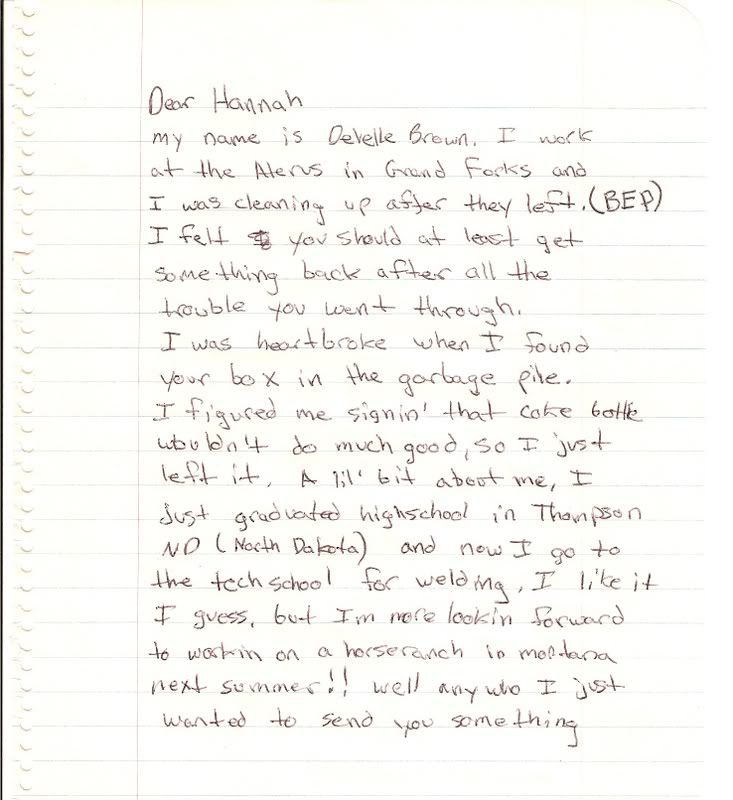 Dear Hannah
my name is Develle Brown. I work
at the Alerus in Grand Forks and
I was cleaning up after they left. (BEP)
I felt you should at least get
something back after all the
trouble you went through.
I was heartbroke when I found
your box in the garbage pile.
I figured me signin' that coke bottle
wouldn't do much good, so I just
left it. A lil' bit about me, I
just graduated highschool in Thompson
ND (North Dakota) and now I go to
the tech school for welding, I like it
I guess, but I'm more lookin forward
to workin on a horseranch in montana
next summer!! well anywho I just
wanted to send you something